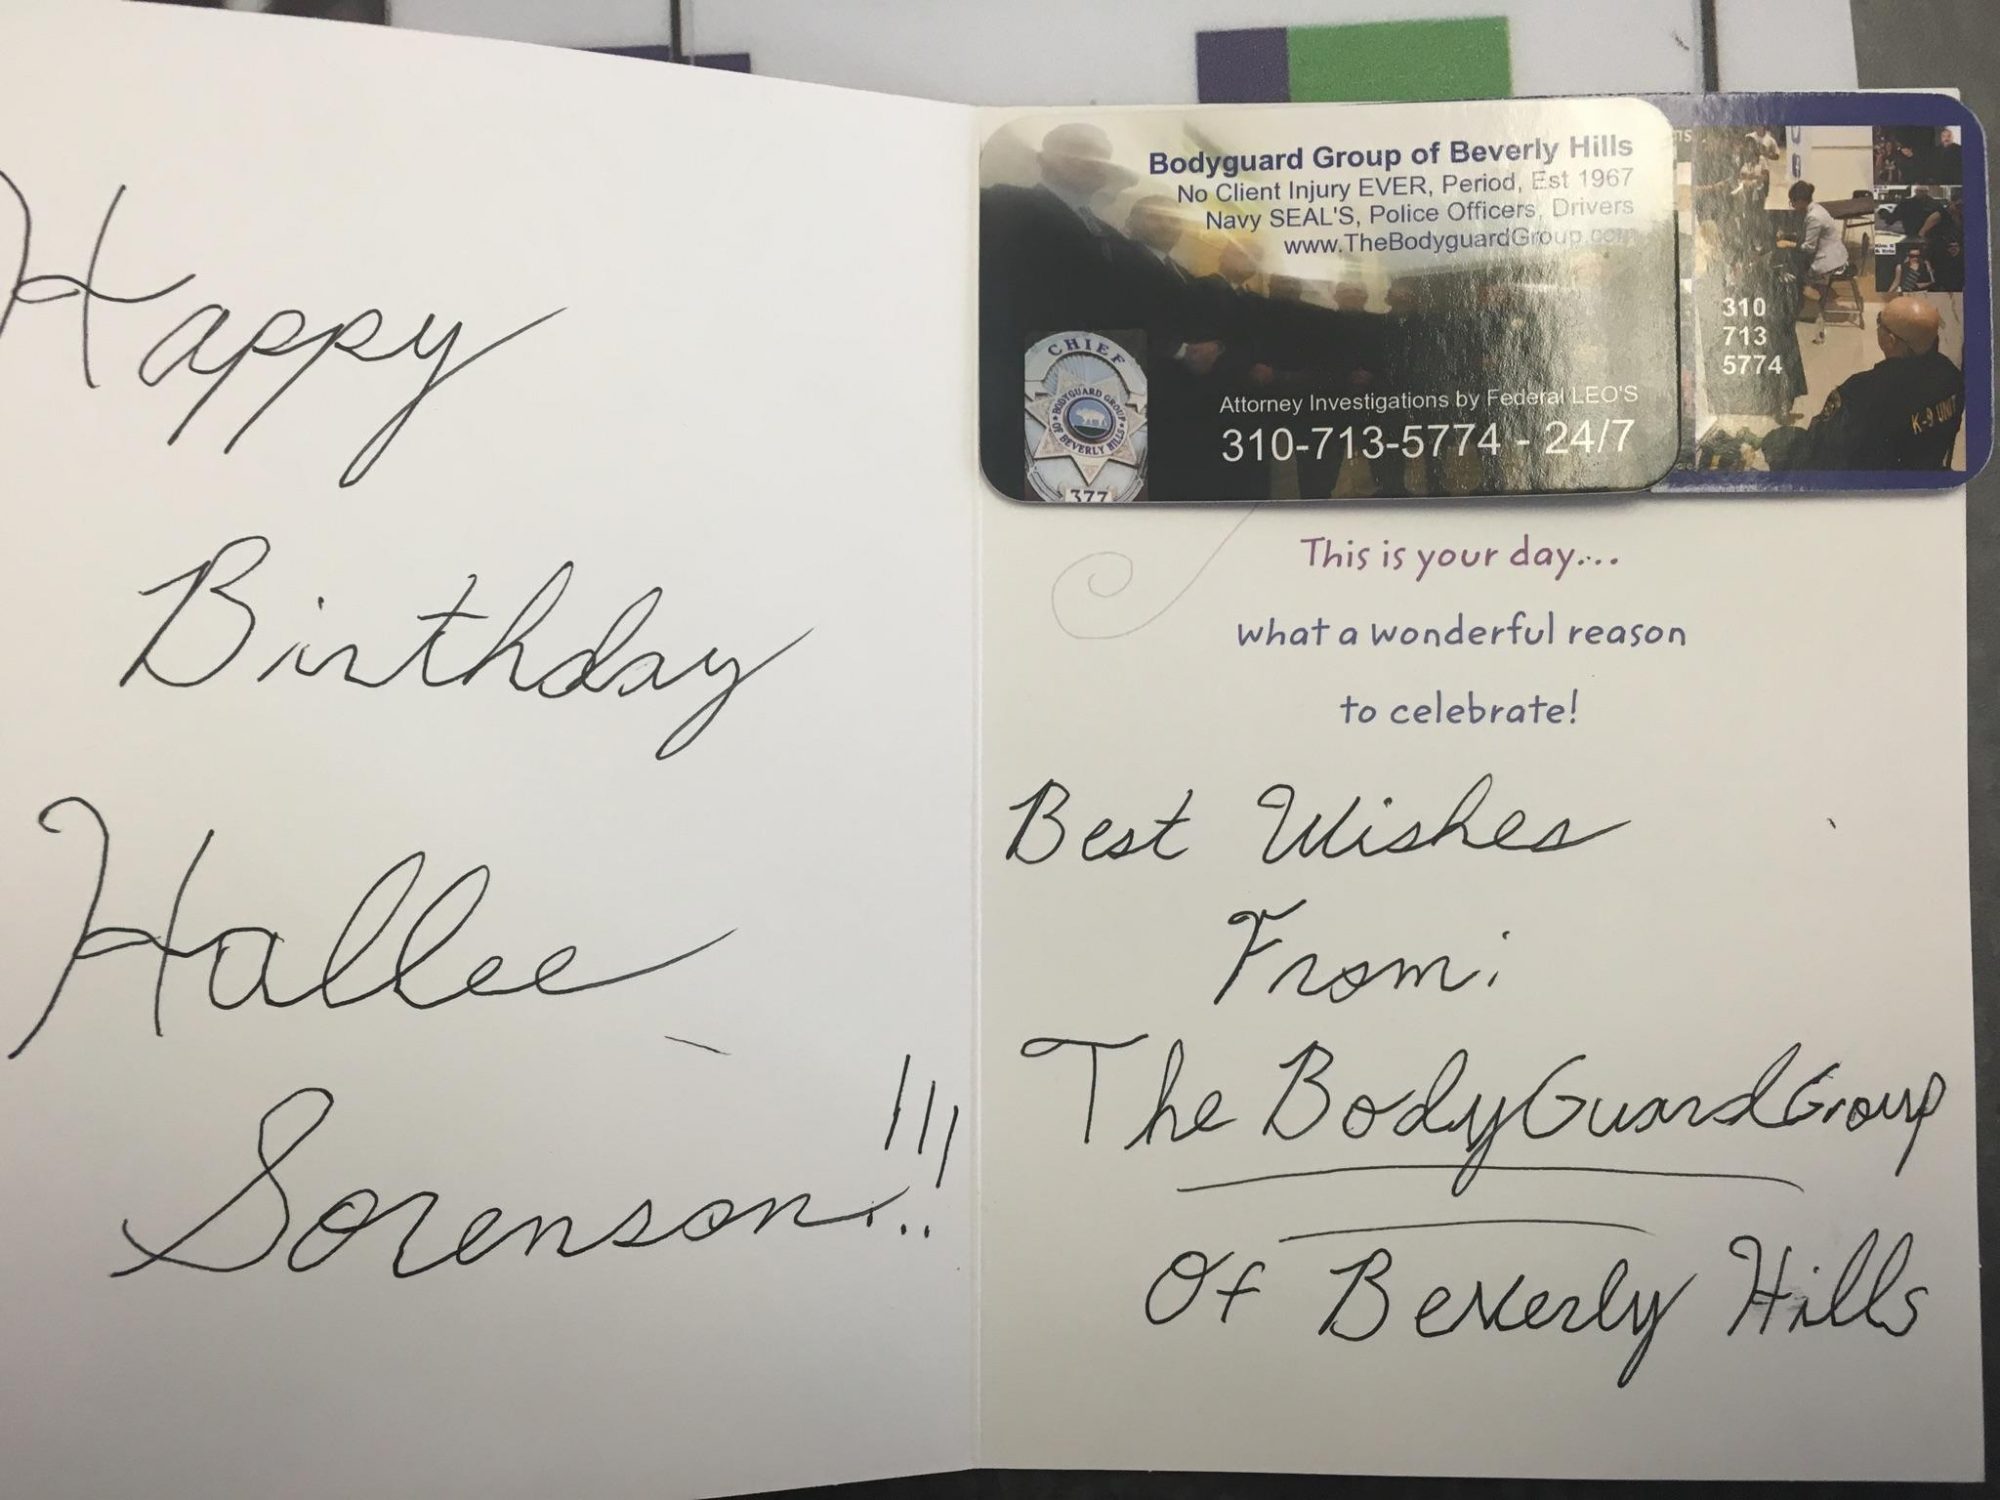 Happy
Birthday
Hallee
Sorenson!!!
Bodyguard Group of Beverly Hills
No Client Injury EVER, Period, Est 1967
Navy SEAL'S, Police Officers, Drivers
www.TheBodyguardGroup.com
CHIEF
BODYGUARD GROUP
OF BEVERLY HILLS
377
Attorney Investigations by Federal LEO'S
310-713-5774 - 24/7
310
713
5774
K-9 UNIT
This is your day...
what a wonderful reason
to celebrate!
Best Wishes
From:
The BodyGuardGroup
Of Beverly Hills